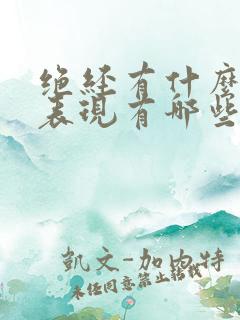 绝经有什么
表现有哪些
凯文-加内特
未经同意禁止转载